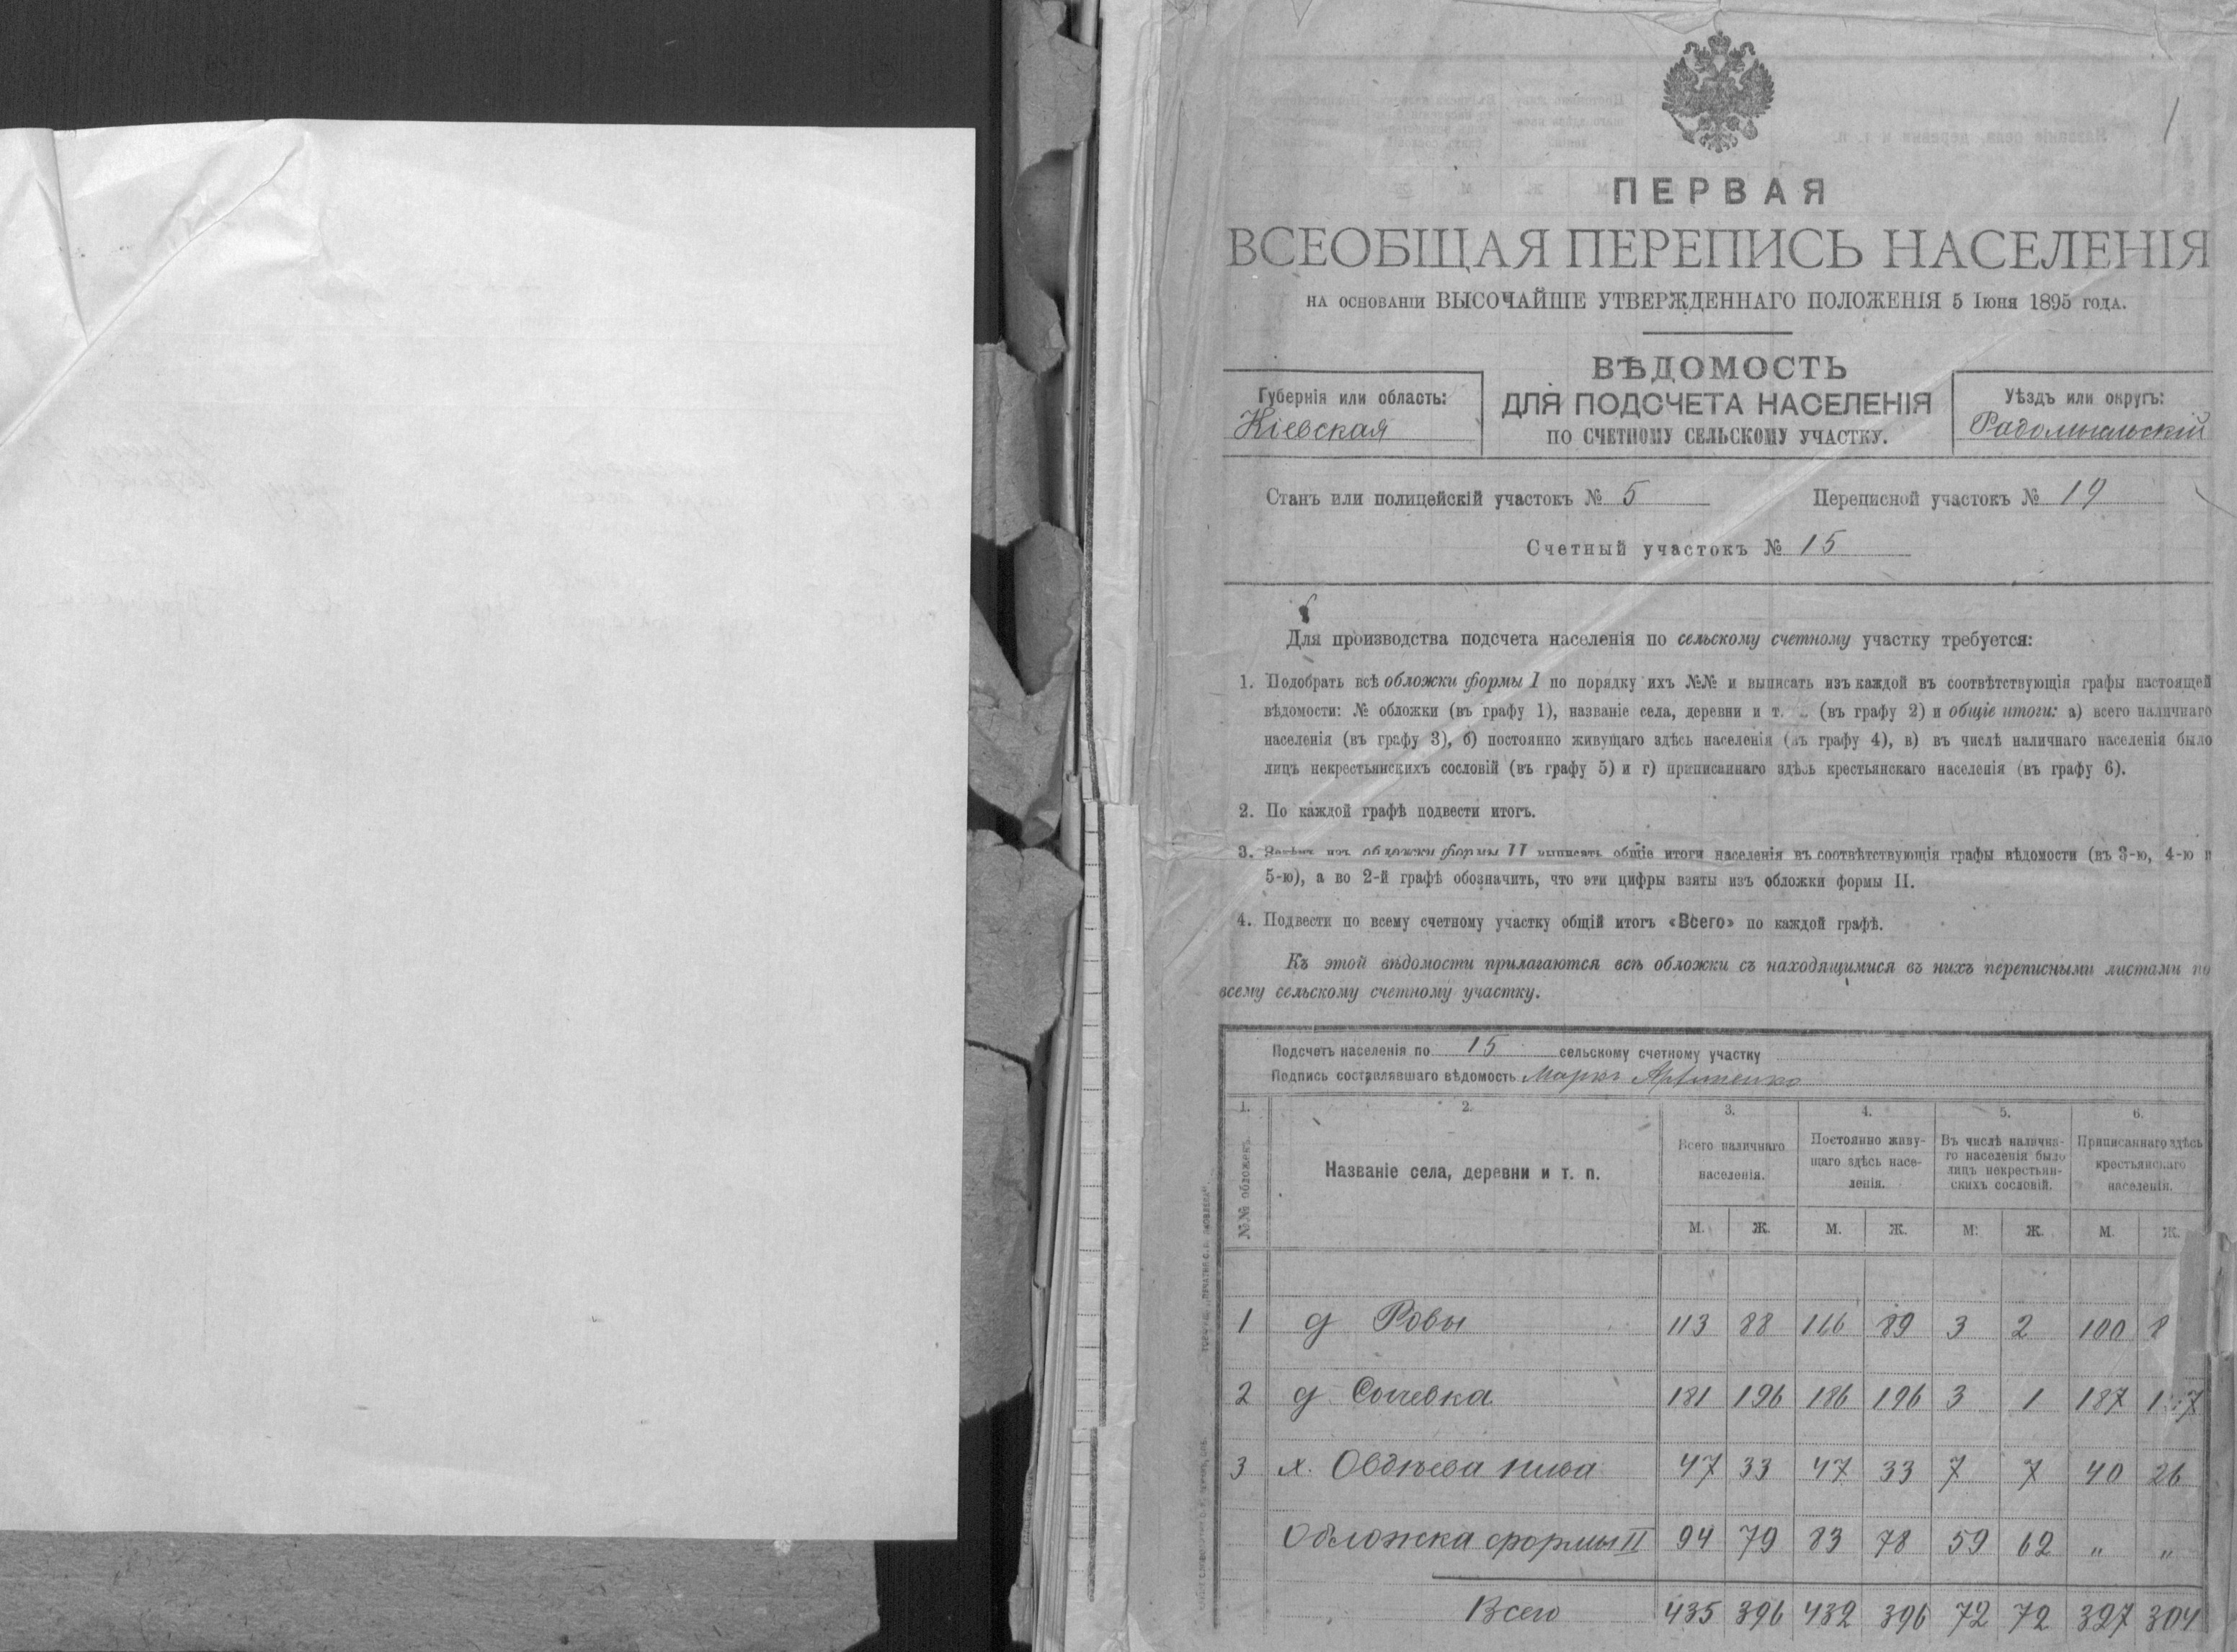 1
ПЕРВАЯ
ВСЕОБЩАЯ ПЕРЕПИСЬ НАСЕЛЕНІЯ
НА ОСНОВАНІИ ВЫСОЧАЙШЕ УТВЕРЖДЕННАГО ПОЛОЖЕНІЯ 5 Іюня 1895 ГОДА.
ВѢДОМОСТЬ
ДЛЯ ПОДСЧЕТА НАСЕЛЕНІЯ
ПО СЧЕТНОМУ СЕЛЬСКОМУ УЧАСТКУ.
Губернія или область:
Кіевская
Уѣздъ или округъ:
Радомысльскій
Станъ или полицейскій участокъ № 5 Переписной участокъ № 19
Счетный участокъ № 15
Для производства подсчета населенія по сельскому счетному участку требуется:
1. Подобрать всѣ обложки формы I по порядку ихъ №№ и выписать изъ каждой въ соотвѣтствующія графы настоящей
вѣдомости: № обложки (въ графу 1), названіе села, деревни и т. (въ графу 2) и общіе итоги: а) всего наличнаго
населенія (въ графу 3), б) постоянно живущаго здѣсь населенія (въ графу 4), в) въ числѣ наличнаго населенія было
лицъ некрестьянскихъ сословій (въ графу 5) и г) приписаннаго здѣсь крестьянскаго населенія (въ графу 6).
2. По каждой графѣ подвести итогъ.
3. Затѣмъ изъ обложки формы II выписать общіе итоги населенія въ соотвѣтствующія графы вѣдомости (въ 3-ю, 4-ю и
5-ю), а во 2-й графѣ обозначить, что эти цифры взяты изъ обложки формы II.
4. Подвести по всему счетному участку общій итогъ «Всего» по каждой графѣ.
Къ этой вѣдомости прилагаются всѣ обложки съ находящимися въ нихъ переписными листами по
всему сельскому счетному участку.
Подсчетъ населенія по 15 сельскому счетному участку
Подпись составлявшаго вѣдомость Маркъ
1. 2. 3. 4. 5. 6.
№№ обложекъ.
Названіе села, деревни и т. п.
Всего наличнаго
населенія.
Постоянно живу-
щаго здѣсь насе-
ленія.
Въ числѣ налична-
го населенія было
лицъ некрестьян-
скихъ сословій.
Приписаннаго здѣсь
крестьянскаго
населенія.
М. Ж. М. Ж. М. Ж. М. Ж.
1 д Ровы 113 88 116 89 3 2 100 8
2 д Сычевка 181 196 186 196 3 1 187
3 х. Овдѣева нива 47 33 47 33 7 7 40 26
Обложка формы II 94 79 83 78 59 62 " "
Всего 435 396 432 396 72 72 327 304